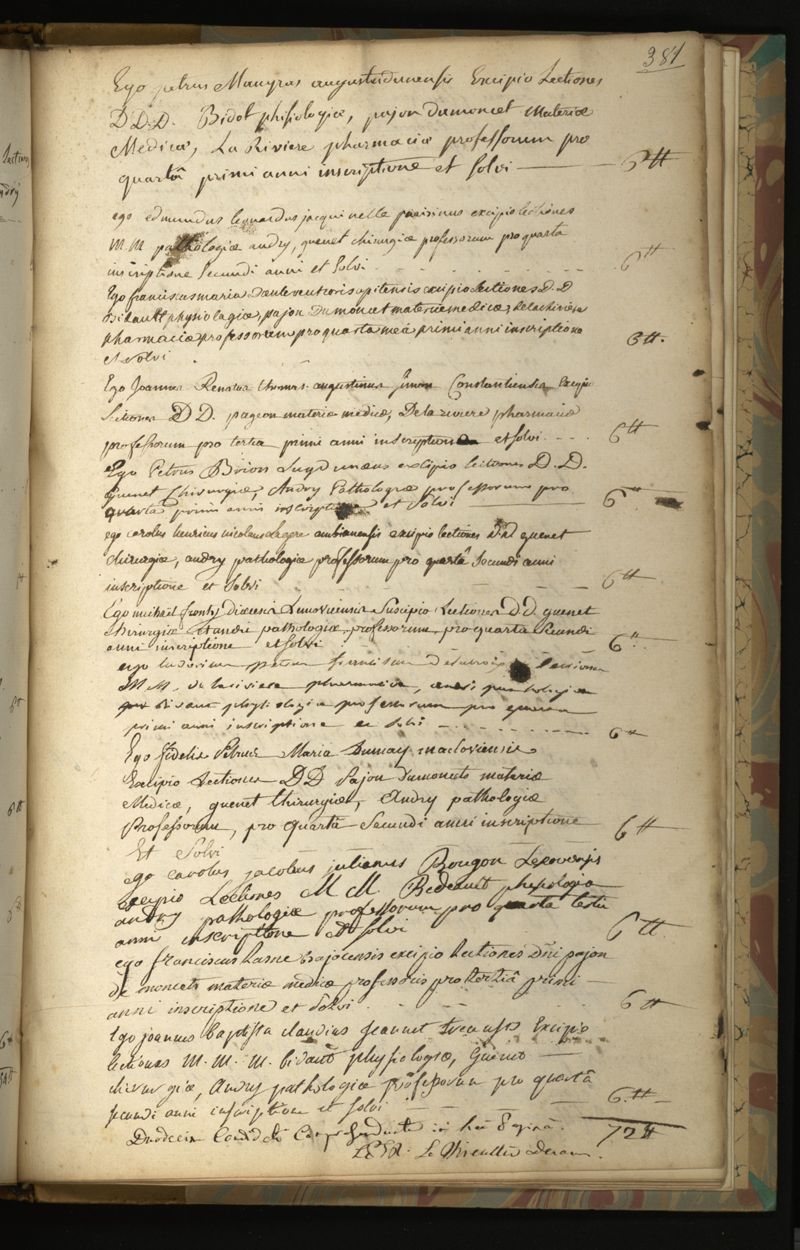 381
Ego petrus Maugras augustudunensis Excipio Lectiones
D.D.D. Bidot phisiologiæ, pajon dumoncet Materiæ
Medicæ, La Riviere pharmaciæ professorum pro
quartâ primi anni inscriptione et solvi — 6 ₶
ego edmundus leonardus jacquinelle parisinus excipio lectiones
M.M. pathologiæ andry, quenet chirurgiæ professorum pro quarta
inscriptione secundi anni et solvi 6 ₶
Ego franciscus maria excipio Lectiones D.D
Bidault physiologiæ, pajon Dumoncet materiæ medicæ, delariviere
pharmaciæ professorum pro quarta meâ primi anni inscriptione
et solvi 6 ₶.
Ego Joannes Renatus thomas augustinus Simon Constantiensis Excipio
Lectiones D D. pageon materiæ medicæ, Delariviere pharmaciæ
professorum pro tertia primi anni inscriptione et solvi 6 ₶
Ego Petrus Brion Lugdunæus excipio lectiones D.D.
quenet Chirurgiæ, Andry Pathologiæ professorum pro
quarta primi anni inscriptione et solvi 6 ₶
ego carolus henricus nicolaus Legere ambianensis excipio lectiones D.D quenet
chirurgiæ, andry pathologiæ professorum pro quartâ secundi anni
inscriptione et solvi 6 ₶
Ego michael diœcesis Lemovicensis Suscipio Lectiones D D. quenet
chirurgiæ et andri pathologiæ, professorum, pro quarta secundi
anni inscriptione et solvi 6 ₶
ego ludovicus petrus franciscus lectiones
M M. de lariviere pharmaciæ, andri pathologiæ
physiologiæ professorum pro quarta
primi anni inscriptione et solvi 6 ₶
Ego fidelis Petrus Maria Dumay macloviensis
Excipio Lectiones D D Pajon dumoncets materiæ
Medicæ, quenet chirurgiæ, Andry pathologiæ
Professorum, pro quartâ secundi anni inscriptione 6 ₶
Et Solvi
ego carolus jacobus julianus Bougon Lexoviensis
Excipio Lectiones M M. Bideault phisiologiæ
andry pathologiæ professorum pro quarta tertii
anni inscriptione et solvi 6 ₶
ego franciscus hasne bajocensis excipio lectiones dni pajon
de moncets materiæ medicæ professoris pro tertiâ primi
anni inscriptione et solvi 6 ₶
Ego joannes baptista claudius Jeannet Excipio
lectiones M. M. M. bidault physiologiæ, Quenet
chirurgiæ, Andry pathologiæ professorum pro quartâ
secundi anni inscriptione et solvi 6 ₶
Duodecim Candidati in hac Paginâ. 72 ₶